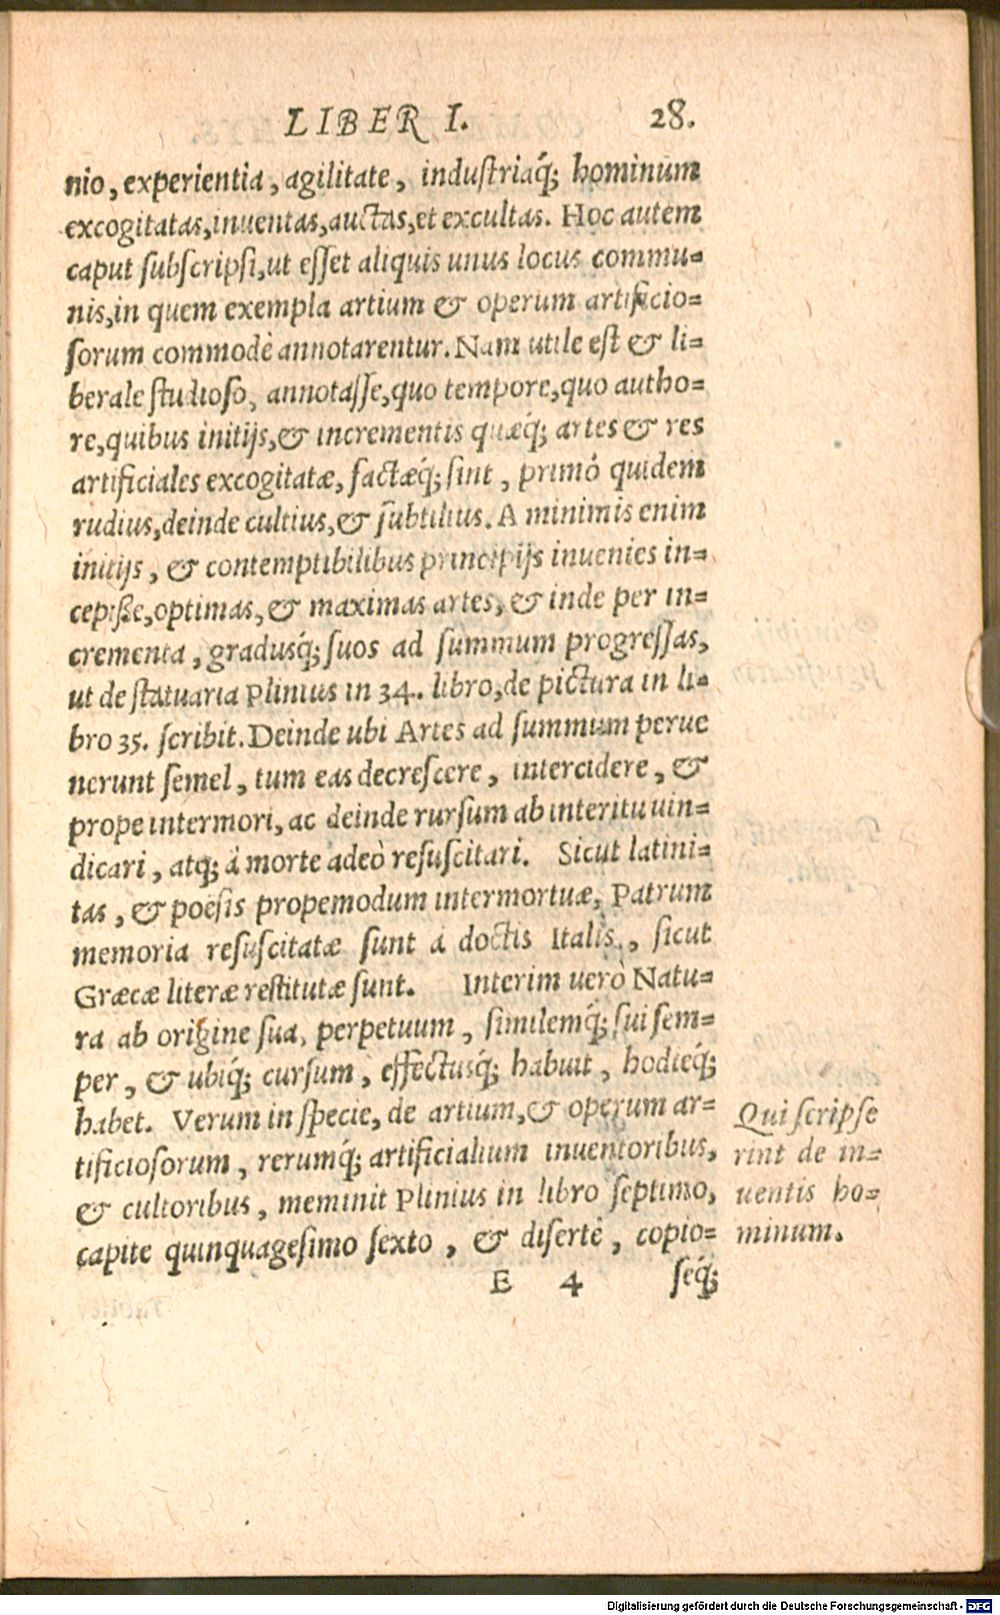 LIBER I. 28.
nio, experientia, agilitate, industriaq́; hominum
excogitatas, inuentas, auctas, et excultas. Hoc autem
caput subscripsi, ut esset aliquis unus locus commu=
nis, in quem exempla artium & operum artificio=
sorum commodè annotarentur. Nam utile est & li=
berale studioso, annotasse, quo tempore, quo autho=
re, quibus initijs, & incrementis quæq́; artes & res
artificiales excogitatæ, factæq́; sint, primò quidem
rudius, deinde cultius, & subtilius. A minimis enim
initijs, & contemptibilibus principijs inuenies in=
cepiße, optimas, & maximas artes, & inde per in=
crementa, gradusq́; suos ad summum progressas,
ut de statuaria Plinius in 34. libro, de pictura in li=
bro 35. scribit. Deinde ubi Artes ad summum perue
nerunt semel, tum eas decrescere, intercidere, &
prope intermori, ac deinde rursum ab interitu uin=
dicari, atq; à morte adeò resuscitari. Sicut latini=
tas, & poësis propemodum intermortuæ, Patrum
memoria resuscitatæ sunt à doctis Italis, sicut
Græcæ literæ restitutæ sunt. Interim uerò Natu=
ra ab origine sua, perpetuum, similemq́; sui sem=
per, & ubiq́; cursum, effectusq́; habuit, hodieq́;
habet. Verum in specie, de artium, & operum ar=
tificiosorum, rerumq́; artificialium inuentoribus,
& cultoribus, meminit Plinius in libro septimo,
capite quinquagesimo sexto, & disertè, copio=
E 4 seq́;
Qui scripse
rint de in=
uentis ho=
minum.
Digitalisierung gefördert durch die Deutsche Forschungsgemeinschaft - DFG